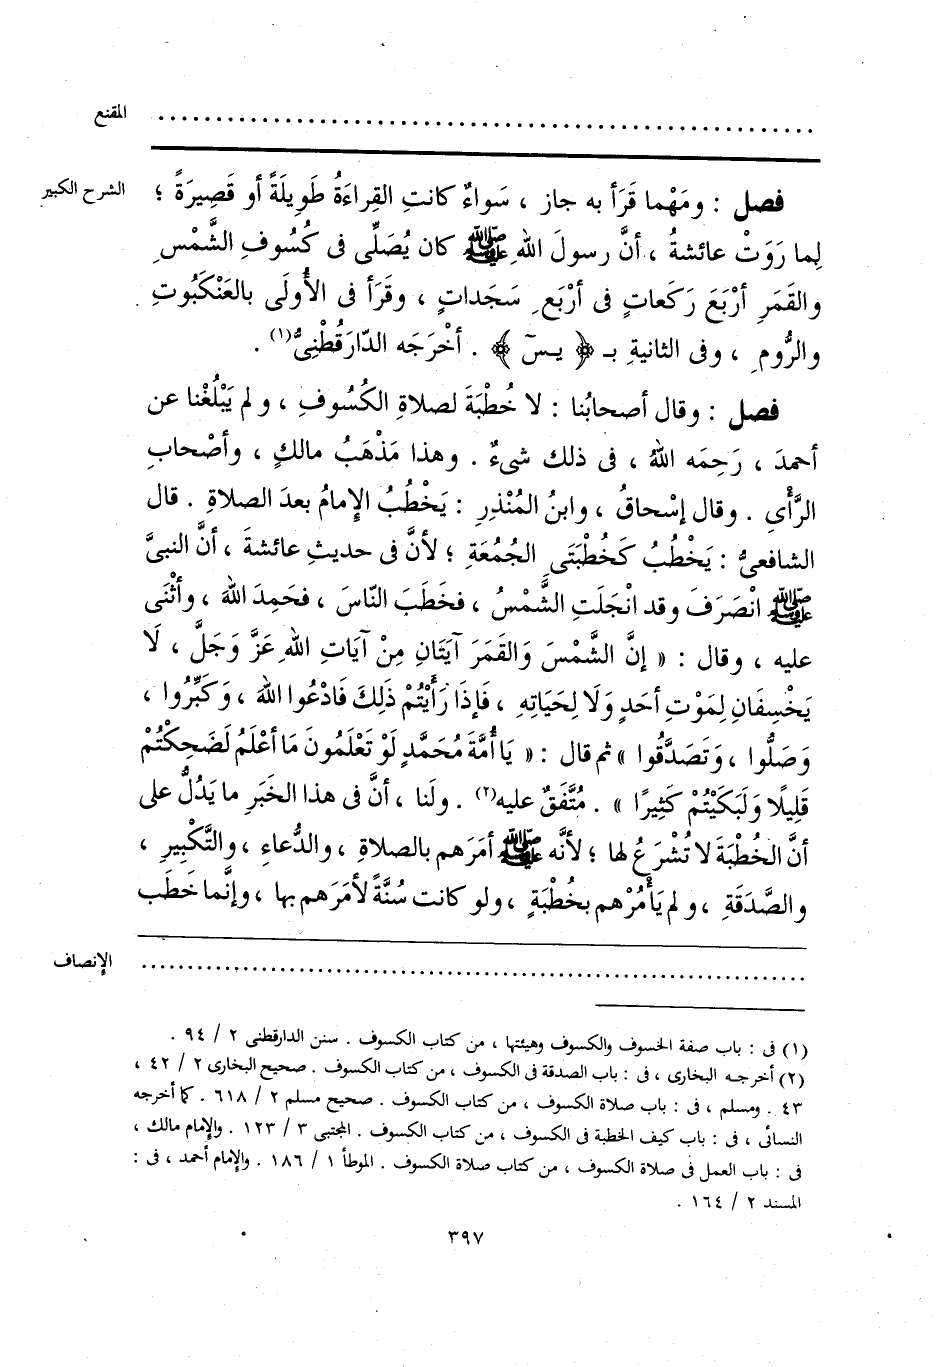 المقنع ........................................................
الشرح الكبير
فصل : ومَهْما قَرَأ به جاز ، سَواءٌ كانتِ القِراءَةُ طَوِيلَةً أو قَصِيرَةً ؛
لِما رَوَتْ عائشةُ ، أنَّ رسولَ اللهِ ﷺ كان يُصَلِّى فى كُسُوفِ الشَّمْسِ
والقَمَرِ أرْبَعَ رَكَعاتٍ فى أرْبَعِ سَجَداتٍ ، وقَرَأ فى الأُولَى بالعَنْكَبُوتِ
والرُّومِ ، وفى الثانيةِ بـ ﴿ يـسٓ ﴾ . أخْرَجَه الدّارَقُطْنِىُّ(١) .
فصل : وقال أصحابُنا : لا خُطْبَةَ لصلاةِ الكُسُوفِ ، ولم يَبْلُغْنا عن
أحمدَ ، رَحِمَه اللهُ ، فى ذلك شىءٌ . وهذا مَذْهَبُ مالكٍ ، وأصْحابِ
الرَّأْىِ . وقال إسْحاقُ ، وابنُ المُنْذِرِ : يَخْطُبُ الإِمامُ بعدَ الصلاةِ . قال
الشافعىُّ : يَخْطُبُ كَخُطْبَتَىِ الجُمُعَةِ ؛ لأنَّ فى حديثِ عائشةَ ، أنَّ النبىَّ
ﷺ انْصَرَفَ وقد انْجَلَتِ الشَّمْسُ ، فخَطَبَ النّاسَ ، فحَمِدَ اللهَ ، وأثْنَى
عليه ، وقال : « إنَّ الشَّمْسَ وَالقَمَرَ آيَتَانِ مِنْ آيَاتِ اللهِ عَزَّ وَجَلَّ ، لَا
يَخْسِفَانِ لِمَوْتِ أحَدٍ وَلَا لِحَيَاتِهِ ، فَإذَا رَأَيْتُمْ ذَلِكَ فَادْعُوا اللهَ ، وَكَبِّرُوا ،
وَصَلُّوا ، وَتَصَدَّقُوا » ثم قال : « يَا أُمَّةَ مُحَمَّدٍ لَوْ تَعْلَمُونَ مَا أعْلَمُ لَضَحِكْتُمْ
قَلِيلًا وَلَبَكَيْتُمْ كَثِيرًا » . مُتَّفَقٌ عليه(٢) . ولَنا ، أنَّ فى هذا الخَبَرِ ما يَدُلُّ على
أنَّ الخُطْبَةَ لا تُشْرَعُ لها ؛ لأنَّه ﷺ أمَرَهم بالصلاةِ ، والدُّعاءِ ، والتَّكْبِيرِ ،
والصَّدَقَةِ ، ولم يَأْمُرْهم بخُطْبَةٍ ، ولو كانت سُنَّةً لأمَرَهم بها ، وإنَّما خَطَب
الإنصاف ........................................................
(١) فى : باب صفة الخسوف والكسوف وهيئتها ، من كتاب الكسوف . سنن الدارقطنى ٢ / ٩٤ .
(٢) أخرجـه البخارى ، فى : باب الصدقة فى الكسوف ، من كتاب الكسوف . صحيح البخارى ٢ / ٤٢ ،
٤٣ . ومسلم ، فى : باب صلاة الكسوف ، من كتاب الكسوف . صحيح مسلم ٢ / ٦١٨ . كما أخرجه
النسائى ، فى : باب كيف الخطبة فى الكسوف ، من كتاب الكسوف . المجتبى ٣ / ١٢٣ . والإمام مالك ،
فى : باب العمل فى صلاة الكسوف ، من كتاب صلاة الكسوف . الموطأ ١ / ١٨٦ . والإمام أحمد ، فى :
المسند ٢ / ١٦٤ .
٣٩٧